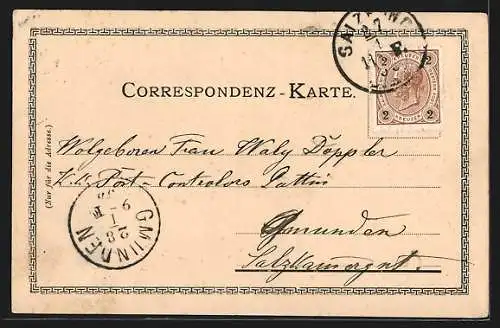 SALZBURG
27
1
11
F.
2 KREUZER 2
CORRESPONDENZ-KARTE.
(Nur für die Adresse.)
Wolgeboren Frau Waly Döppler
K. k. Post-Controlors Gattin
GMUNDEN
28
1
9-M
Gmunden
Salzkamergut.